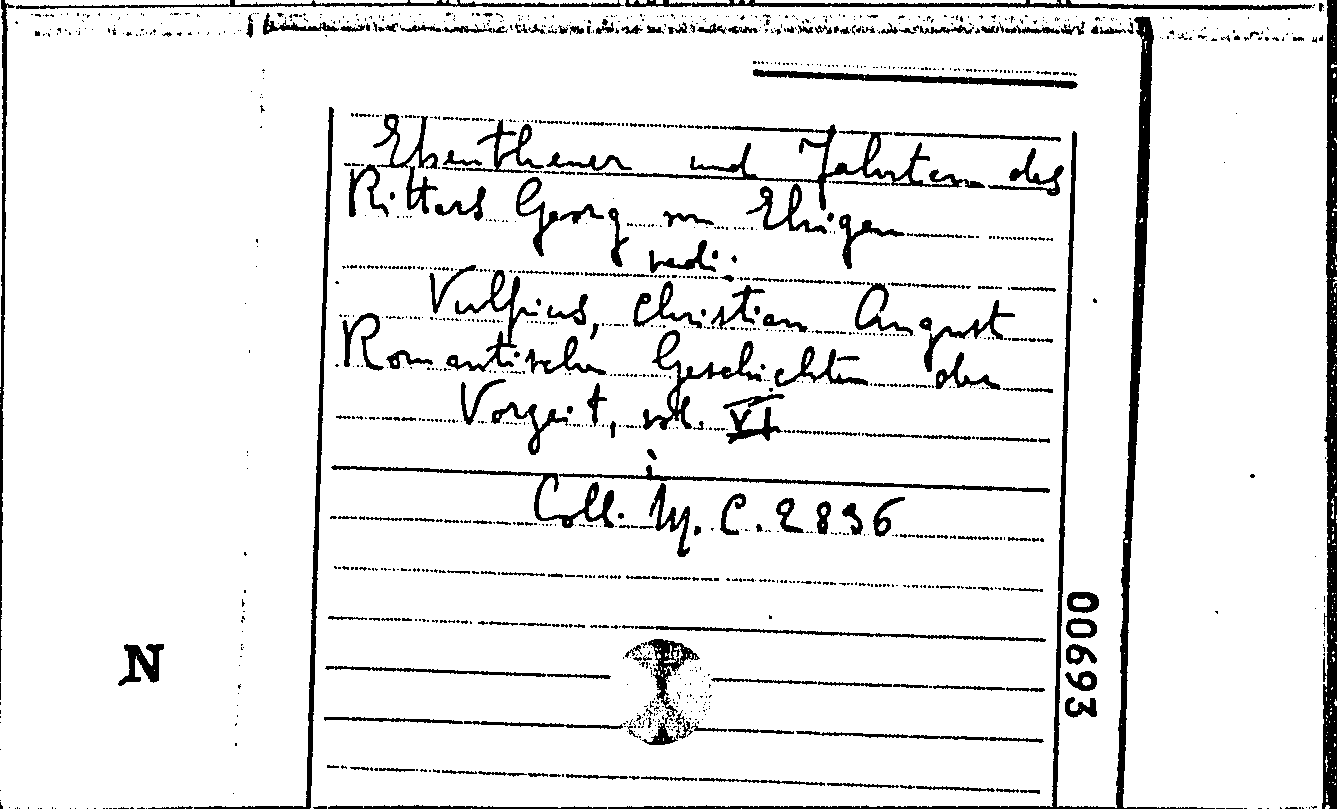 Ebentheuer und Fahrten des
Ritters Georg von Ehigen
vedi:
Vulpius, Christian August
Romantische Geschichten der
Vorzeit, vol. VI
Coll. M. C. 2836
00693
N